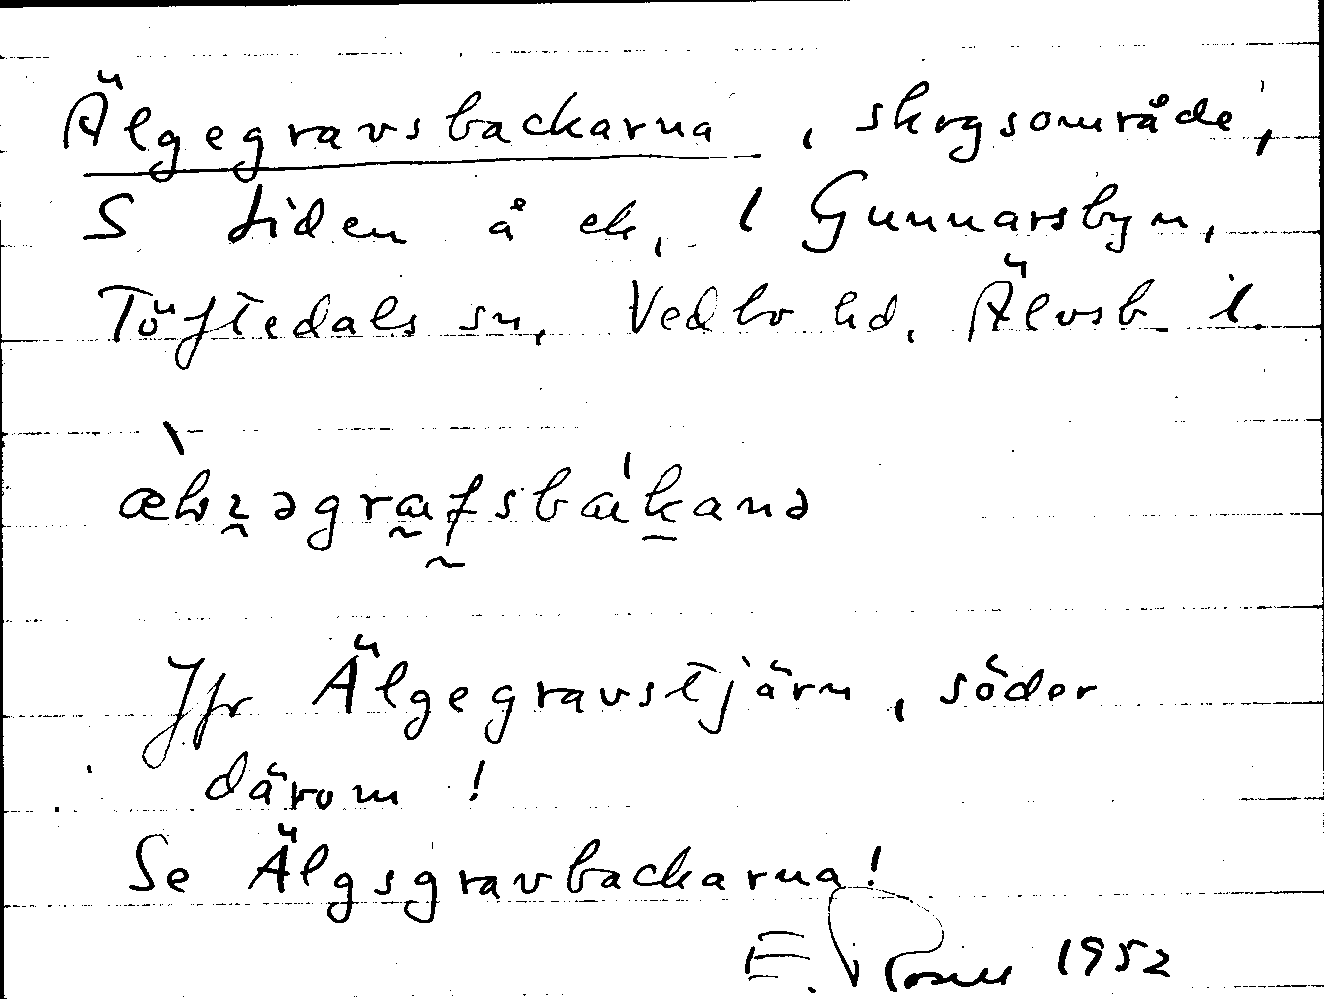 Älgegravsbackarna, skogsområde,
S delen å ek, l Gunnarsbyn,
Töftedals sn, Vedbo hd, Älvsb. l.
Jfr Älgegravstjärn, söder
därom!
Se Älgsgravbackarna!
E. Rosell 1952